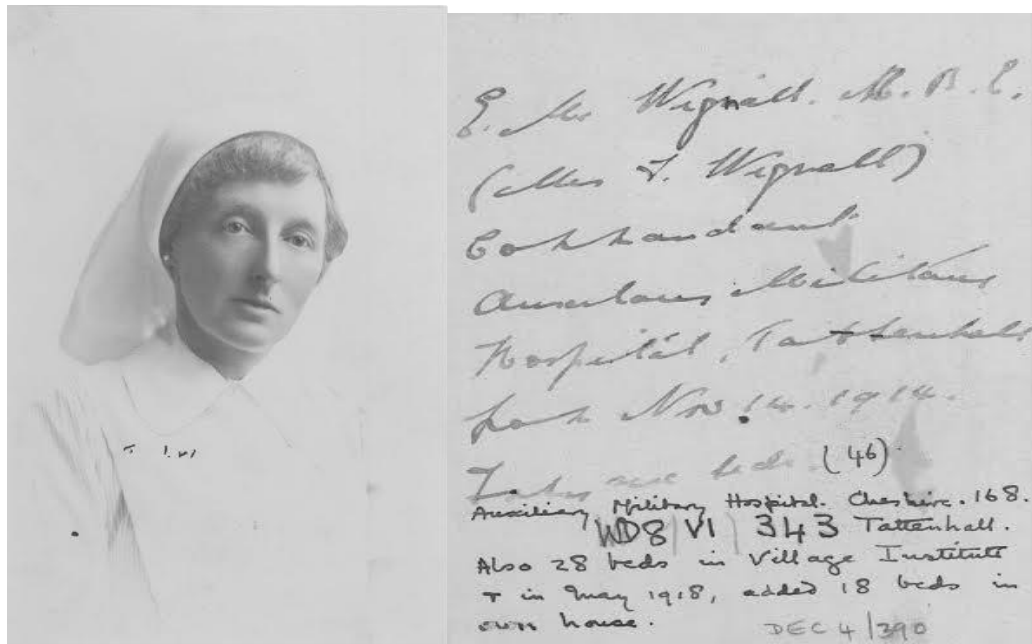 E. M. Wignall. M. B. E.
(Mrs F. Wignall)
Commandant
Auxiliary Military
Hospital, Tattenhall
from Nov. 14. 1914.
beds (46)
Auxiliary Military Hospital. Cheshire. 168.
WD8 VI 343 Tattenhall.
Also 28 beds in Village Institute
+ in May 1918, added 18 beds in
own house.
DEC 4/390